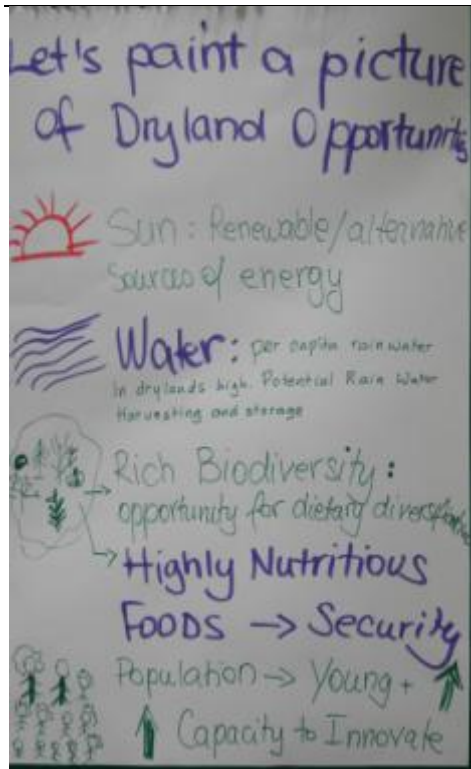 Let's paint a picture
of Dryland Opportunity
Sun: Renewable/alternative
Sources of energy
Water: per capita rain water
in drylands high. Potential Rain Water
Harvesting and storage
Rich Biodiversity:
opportunity for dietary
Highly Nutritious
Foods → Security
Population → Young +
Capacity to Innovate